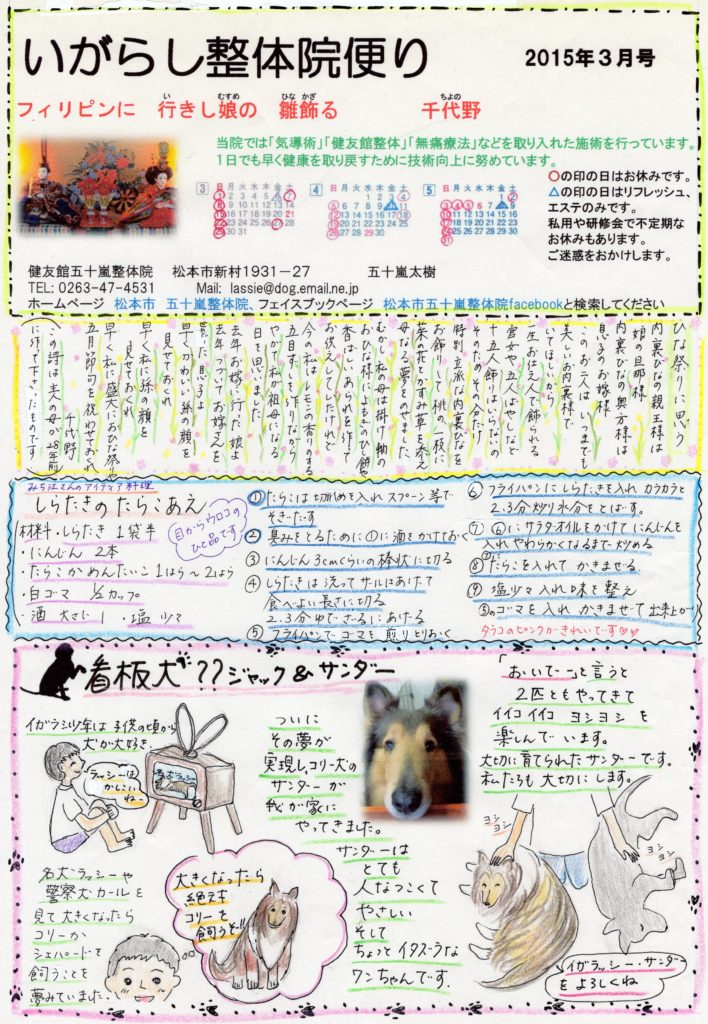 いがらし整体院便り
2015年3月号
フィリピンに 行きし娘の 雛飾る 千代野
当院では「気導術」「健友館整体」「無痛療法」などを取り入れた施術を行っています。
1日でも早く健康を取り戻すために技術向上に努めています。
3 日月火水木金土
4 日月火水木金土
5 日月火水木金土
○の印の日はお休みです。
△の印の日はリフレッシュ、
エステのみです。
私用や研修会で不定期な
お休みもあります。
ご迷惑をおかけします。
健友館五十嵐整体院 松本市新村1931-27 五十嵐太樹
TEL: 0263-47-4531 Mail: lassie@dog.email.ne.jp
ホームページ 松本市 五十嵐整体院、フェイスブックページ 松本市五十嵐整体院facebookと検索してください
ひな祭りに思う
内裏びなの親王様は
娘の旦那様
内裏びなの奥方様は
息子のお嫁様
このお二人は いつまでも
美しいお内裏様で
いてほしいから
一生お仕えして飾られる
官女や五人ばやしなど
十五人飾りはいらないの
そのため その分だけ
特別立派な内裏びなを
お飾りして 桃の枝に
菜の花とかすみ草を添え
母なる夢をのせました
むかし 私の母は掛け軸の
おひな様によもぎのひし餅
香ばしいあられを作って
お供えしてくれたけれど
今の私は レモンの香りのする
五目ずしを作りながら
やがて私が祖母になる
日を思いました
去年 お嫁に行った娘よ
去年 つづいてお嫁さんを
貰った息子よ
早くかわいい孫の顔を
見せておくれ
早く私に孫の顔を
見せておくれ
早く私に盛大におひな祭りや
五月節句を祝わせておくれ
千代野
(この詩は主人の母が28年前
に作って下さったものです)
みち江さんのアイディア料理
しらたきのたらこあえ
目からウロコの
ひと品です
材料・しらたき 1袋半
・にんじん 2本
・たらこかめんたいこ 1はら〜2はら
・白ゴマ 1/2カップ
・酒 大さじ1 ・塩 少々
① たらこは切れ目を入れ スプーン等で
そぎだす
② 臭みをとるために①に酒をかけておく
③ にんじん3cmくらいの棒状に切る
④ しらたきは洗ってザルにあけて
食べよい長さに切る
2.3分ゆでざるにあける
⑤ フライパンでゴマを煎りとりおく
⑥ フライパンにしらたきを入れ カラカラと
2.3分炒り水分をとばす。
⑦ ⑥にサラダオイルをかけてにんじんを
入れやわらかくなるまで炒める
⑧ たらこを入れて かきまぜる
⑨ 塩少々入れ味を整え
⑤のゴマを入れ かきまぜて出来上がり
タラコのピンクがきれいです♡♡
看板犬?? ジャック&サンダー
イガラシ少年は 子供の頃から
犬が大好き.
ラッシーは
かしこい
ね〜
名犬ラッシー
名犬ラッシーや
警察犬カールを
見て大きくなったら
コリーか
シェパードを
飼うことを
夢みていました.
大きくなったら
絶対
コリーを
飼うぞ!!
ついに
その夢が
実現し、コリー犬の
サンダーが
我が家に
やってきました。
サンダーは
とても
人なつこくて
やさしい
そして
ちょっとイタズラな
ワンちゃんです.
「おいで〜」と言うと
2匹ともやってきて
イイコイイコ ヨシヨシ を
楽しんでいます。
大切に育てられたサンダーです.
私たちも大切にします。
ヨシ
ヨシ
ヨシ
ヨシ
イガラッシー・サンダー
をよろしくね